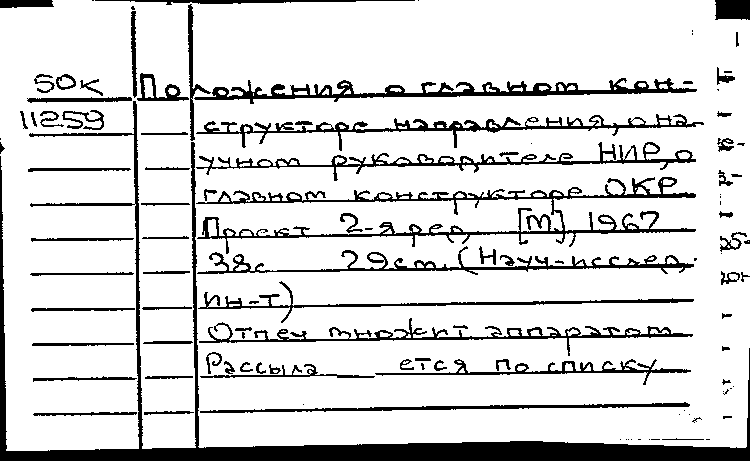 50к Положения о главном кон-
11259 структоре направления, о на-
учном руководителе НИР, о
главном конструкторе ОКР.
Проект 2-я ред. [М], 1967
38с 29см. (Науч-исслед.
ин-т)
Отпеч множит аппаратом
Рассыла ется по списку